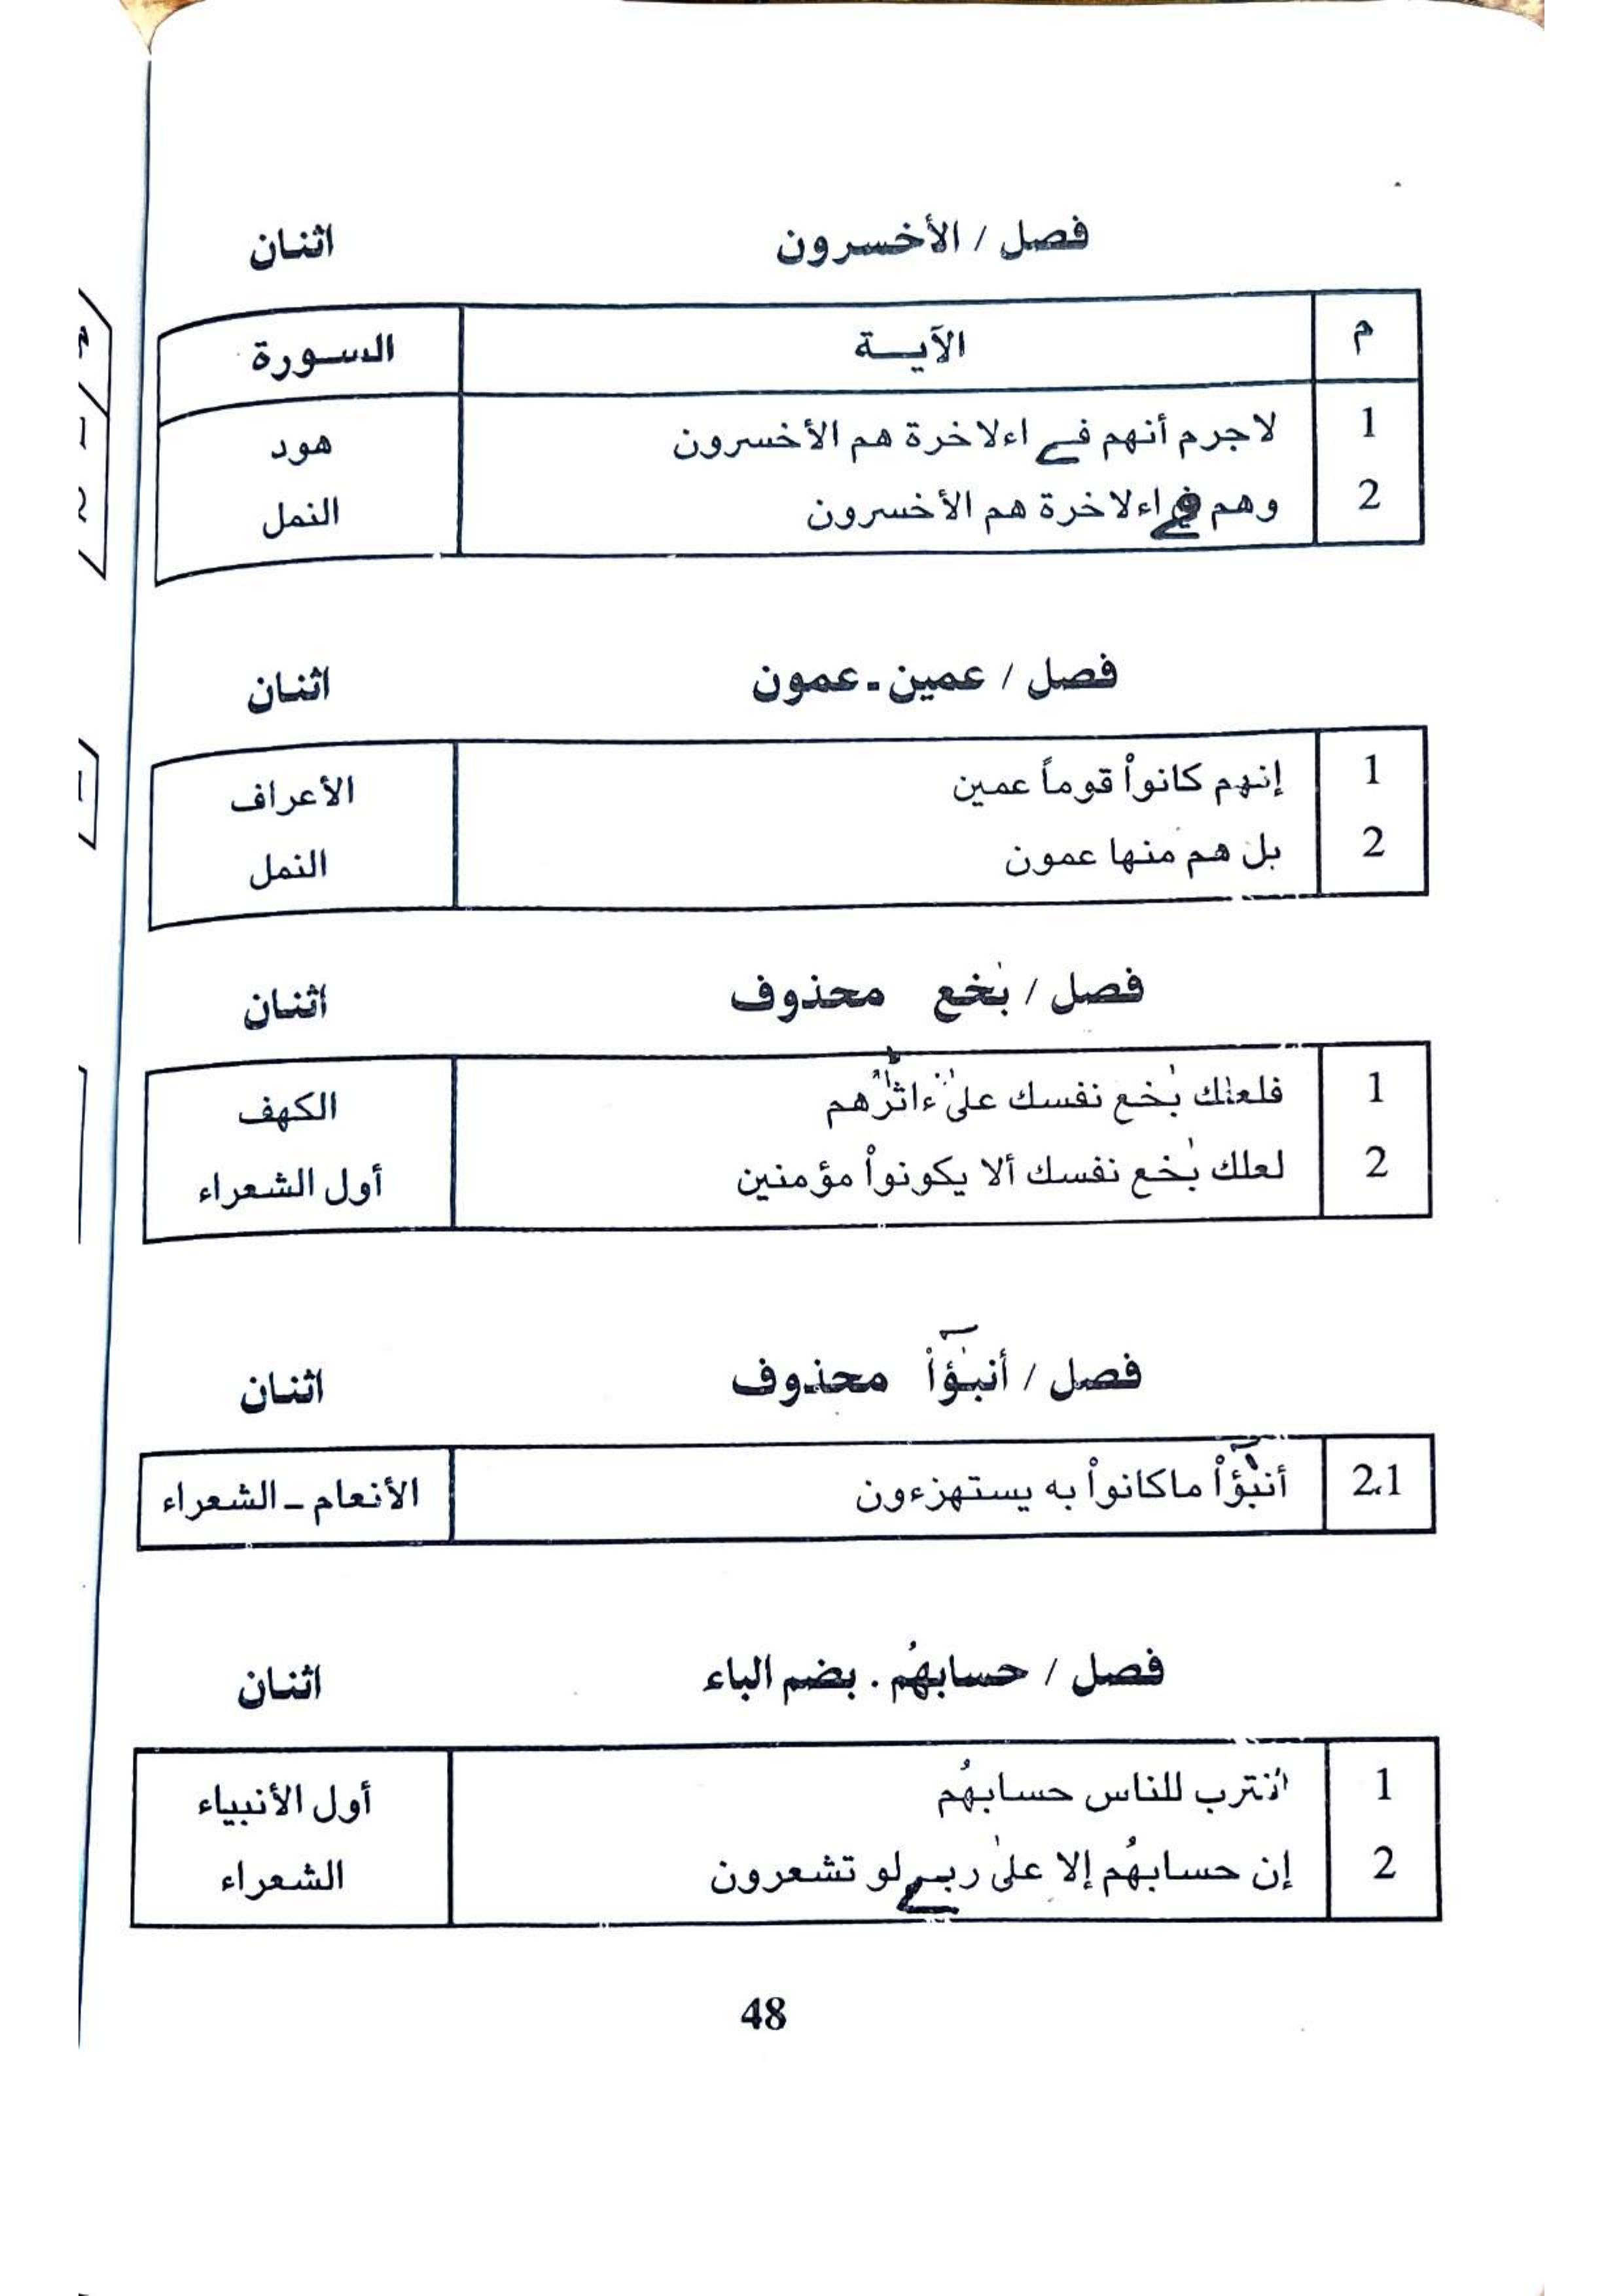 فصل / الأخسرون اثنان
م الآيـــة السـورة
1 لاجرم أنهم فے اءلاخرة هم الأخسرون هود
2 وهم فے اءلاخرة هم الأخسرون النمل
فصل / عمين ـ عمون اثنان
1 إنهم كانواْ قوماً عمين الأعراف
2 بل هم منها عمون النمل
فصل / بٰخع محذوف اثنان
1 فلعلك بٰخع نفسك علىٰ ءاثٰرهم الكهف
2 لعلك بٰخع نفسك ألا يكونواْ مؤمنين أول الشعراء
فصل / أنبـٰٓؤاْ محذوف اثنان
2.1 أنبـٰٓؤاْ ماكانواْ به يستهزءون الأنعام ـ الشعراء
فصل / حسابهُم . بضم الباء اثنان
1 اقترب للناس حسابهُم أول الأنبياء
2 إن حسابهُم إلا علىٰ ربے لو تشعرون الشعراء
48